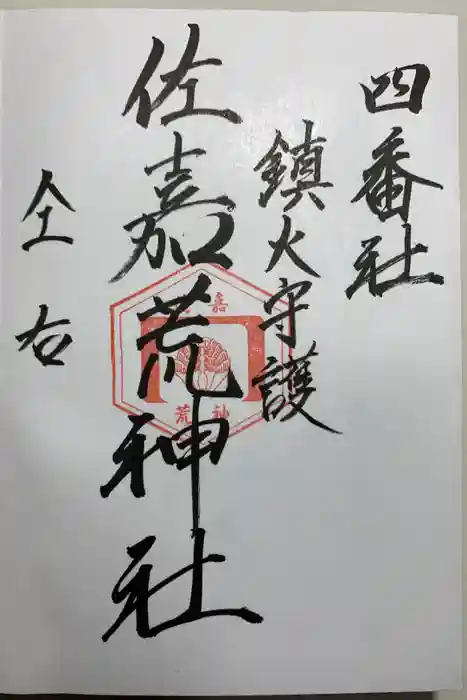 四番社
鎮火守護
佐嘉荒神社
仝右
嘉
荒神